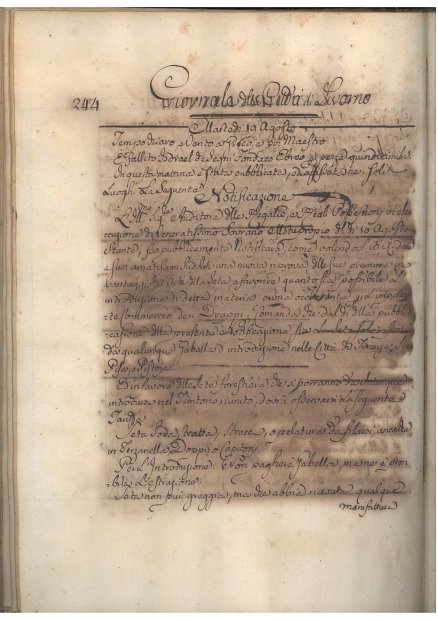 244
Giornale della Città di Livorno
Martedì 19 Agosto
Tempo chiaro, e Vento a Greco e poi Maestro
È fallito Isdrael de Segni Fondaco Ebreo p. pezze quindicimila
In questa mattina è stata pubblicata, ed affissata ne soliti
Luoghi La Seguente
Notificazione
L'Ill.mo Sig.e Auditore delle Regalie, e Reali Possessioni, in ese-
cuzione di Veneratissimo Sovrano Motuproprio del
stante, fa pubblicamente notificare, come volendo S. A. R. dare
a suoi amatissimi Sudditi una nuova riprova delle sue premure in
vantaggio
introduzione di dette materie
commercio dei Drappi, Comanda che dal dì della pubbli-
cazione della presente Notificazione
da qualunque Gabella d'introduzione nelle Città di Firenze,
Pisa, e Pistoia.
Ed in favore delle Sete forestiere che si porranno da chiunque
introdurre nel Territorio riunito, dovrà osservarsi la seguente
Tariffa
Seta Soda, tratta, Stracci, o pelatura da filare, ancorchè
in Terzanella, Doppi, o Capitoni
Per L'Introduzione: Non pagherà Gabella, ma ne è proi-
bita L'estrazione.
Seta non più greggia, ma che abbia ricevuta qualque
manifattura